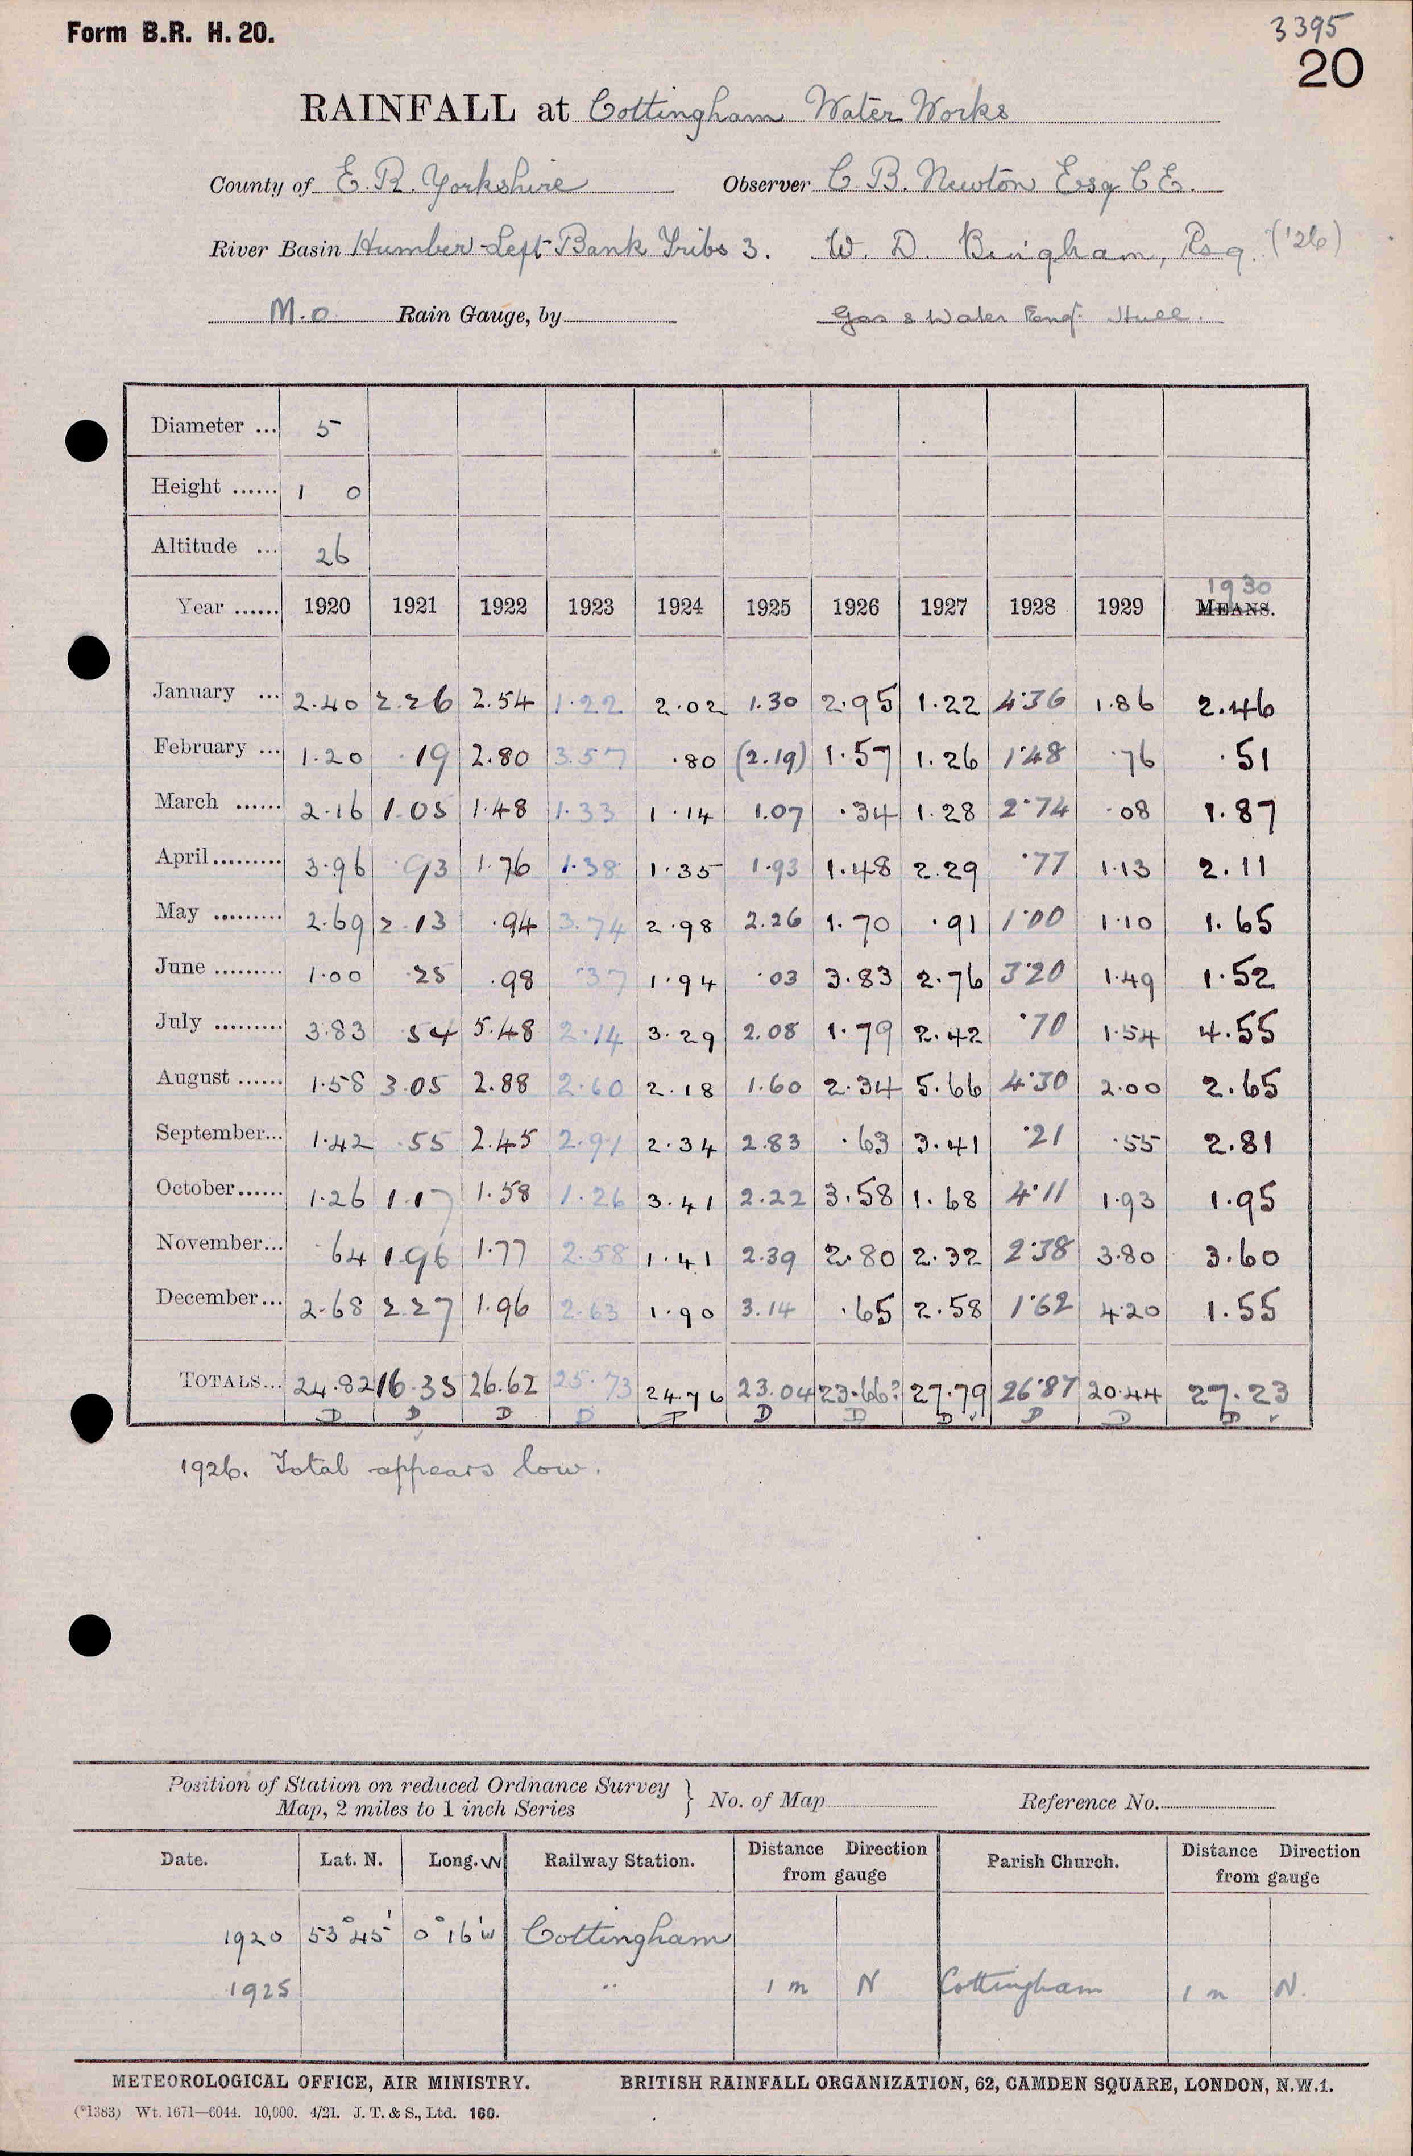 Form B.R. H. 20.
3395
20
RAINFALL at Cottingham Water Works
County of E. R. Yorkshire Observer C. B. Newton Esq C E.
River Basin Humber Left Bank Tribs 3. W. D. Bingham, Esq. ('26)
M.O. Rain Gauge, by Gas & Water Engr. Hull.
Diameter ... 5
Height ...... 1 0
Altitude ... 26
1930
Year ...... 1920 1921 1922 1923 1924 1925 1926 1927 1928 1929 MEANS.
January ... 2.40 2.26 2.54 1.22 2.02 1.30 2.95 1.22 4.36 1.86 2.46
February ... 1.20 .19 2.80 3.57 .80 (2.19) 1.57 1.26 1.48 .76 .51
March ...... 2.16 1.05 1.48 1.33 1.14 1.07 .34 1.28 2.74 .08 1.87
April ......... 3.96 .93 1.76 1.38 1.35 1.93 1.48 2.29 .77 1.13 2.11
May ......... 2.69 2.13 .94 3.74 2.98 2.26 1.70 .91 1.00 1.10 1.65
June ......... 1.00 .25 .98 .37 1.94 .03 3.83 2.76 3.20 1.49 1.52
July ......... 3.83 .54 5.48 2.14 3.29 2.08 1.79 2.42 .70 1.54 4.55
August ...... 1.58 3.05 2.88 2.60 2.18 1.60 2.34 5.66 4.30 2.00 2.65
September... 1.42 .55 2.45 2.91 2.34 2.83 .63 3.41 .21 .55 2.81
October...... 1.26 1.17 1.58 1.26 3.41 2.22 3.58 1.68 4.11 1.93 1.95
November... .64 1.96 1.77 2.58 1.41 2.39 2.80 2.32 2.38 3.80 3.60
December... 2.68 2.27 1.96 2.63 1.90 3.14 .65 2.58 1.62 4.20 1.55
TOTALS... 24.82 16.35 26.62 25.73 24.76 23.04 23.66? 27.79 26.87 20.44 27.23
D D D D D D D D D D
1926. Total appears low.
Position of Station on reduced Ordnance Survey
Map, 2 miles to 1 inch Series } No. of Map Reference No.
Date. Lat. N. Long. W Railway Station. Distance Direction from gauge Parish Church. Distance Direction from gauge
1920 53°45' 0°16'W Cottingham
1925 " 1 m N Cottingham 1 m N.
METEOROLOGICAL OFFICE, AIR MINISTRY. BRITISH RAINFALL ORGANIZATION, 62, CAMDEN SQUARE, LONDON, N.W.1.
(*1383) Wt. 1671—6044. 10,000. 4/21. J. T. & S., Ltd. 160.